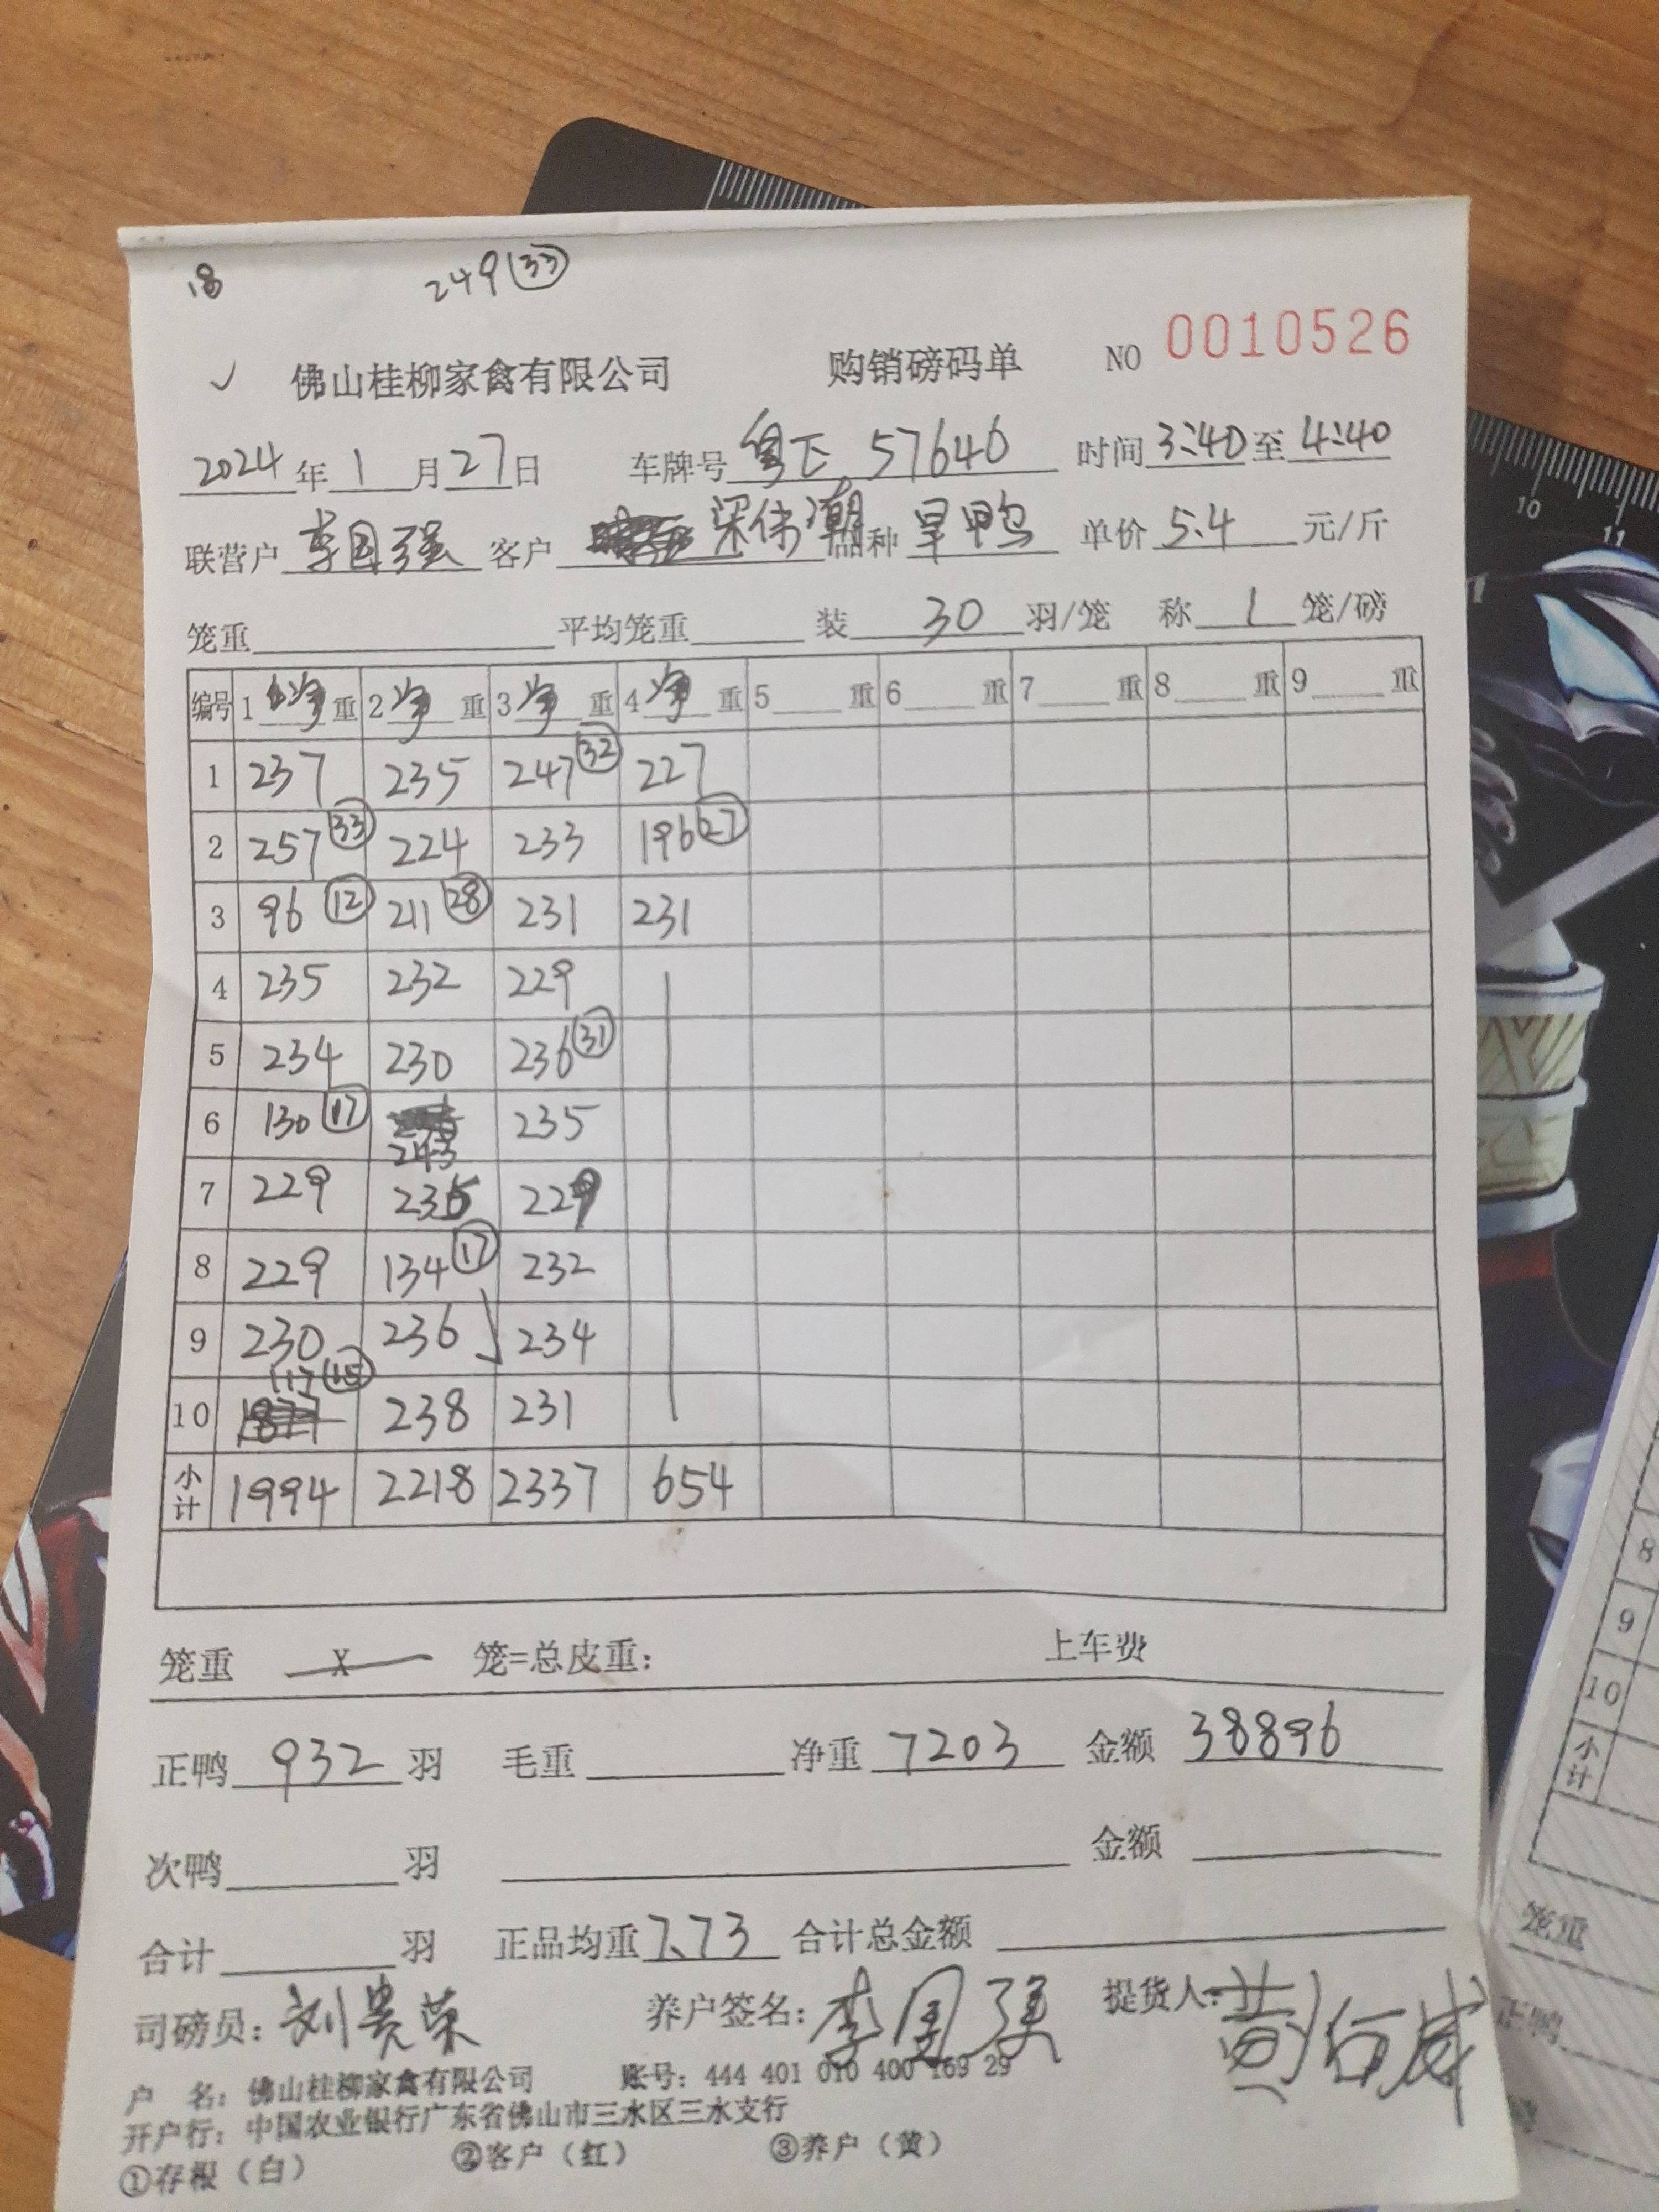 18 249 (33)
✓ 佛山桂柳家禽有限公司 购销磅码单 NO 0010526
2024年1月27日 车牌号粤E 57646 时间3:40至4:40
联营户李国强 客户 梁伟潮 品种旱鸭 单价5.4元/斤
笼重 平均笼重 装30羽/笼 称1笼/磅
编号 1净重 2净重 3净重 4净重 5重 6重 7重 8重 9重
1 237 235 247(32) 227
2 257(33) 224 233 196(27)
3 96(12) 211(28) 231 231
4 235 232 229
5 234 230 236(31)
6 130(17) 243 235
7 229 235 229
8 229 134(17) 232
9 230 236 234
10 117(15) 238 231
小计 1994 2218 2337 654
笼重 X 笼=总皮重: 上车费
正鸭932羽 毛重 净重7203 金额38896
次鸭 羽 金额
合计 羽 正品均重7.73 合计总金额
司磅员:刘贵荣 养户签名:李国强 提货人:黄
户 名:佛山桂柳家禽有限公司 账号:444 401 010 400 169 29
开户行:中国农业银行广东省佛山市三水区三水支行
①存根(白) ②客户(红) ③养户(黄)
8
9
10
小计
笼重
正鸭